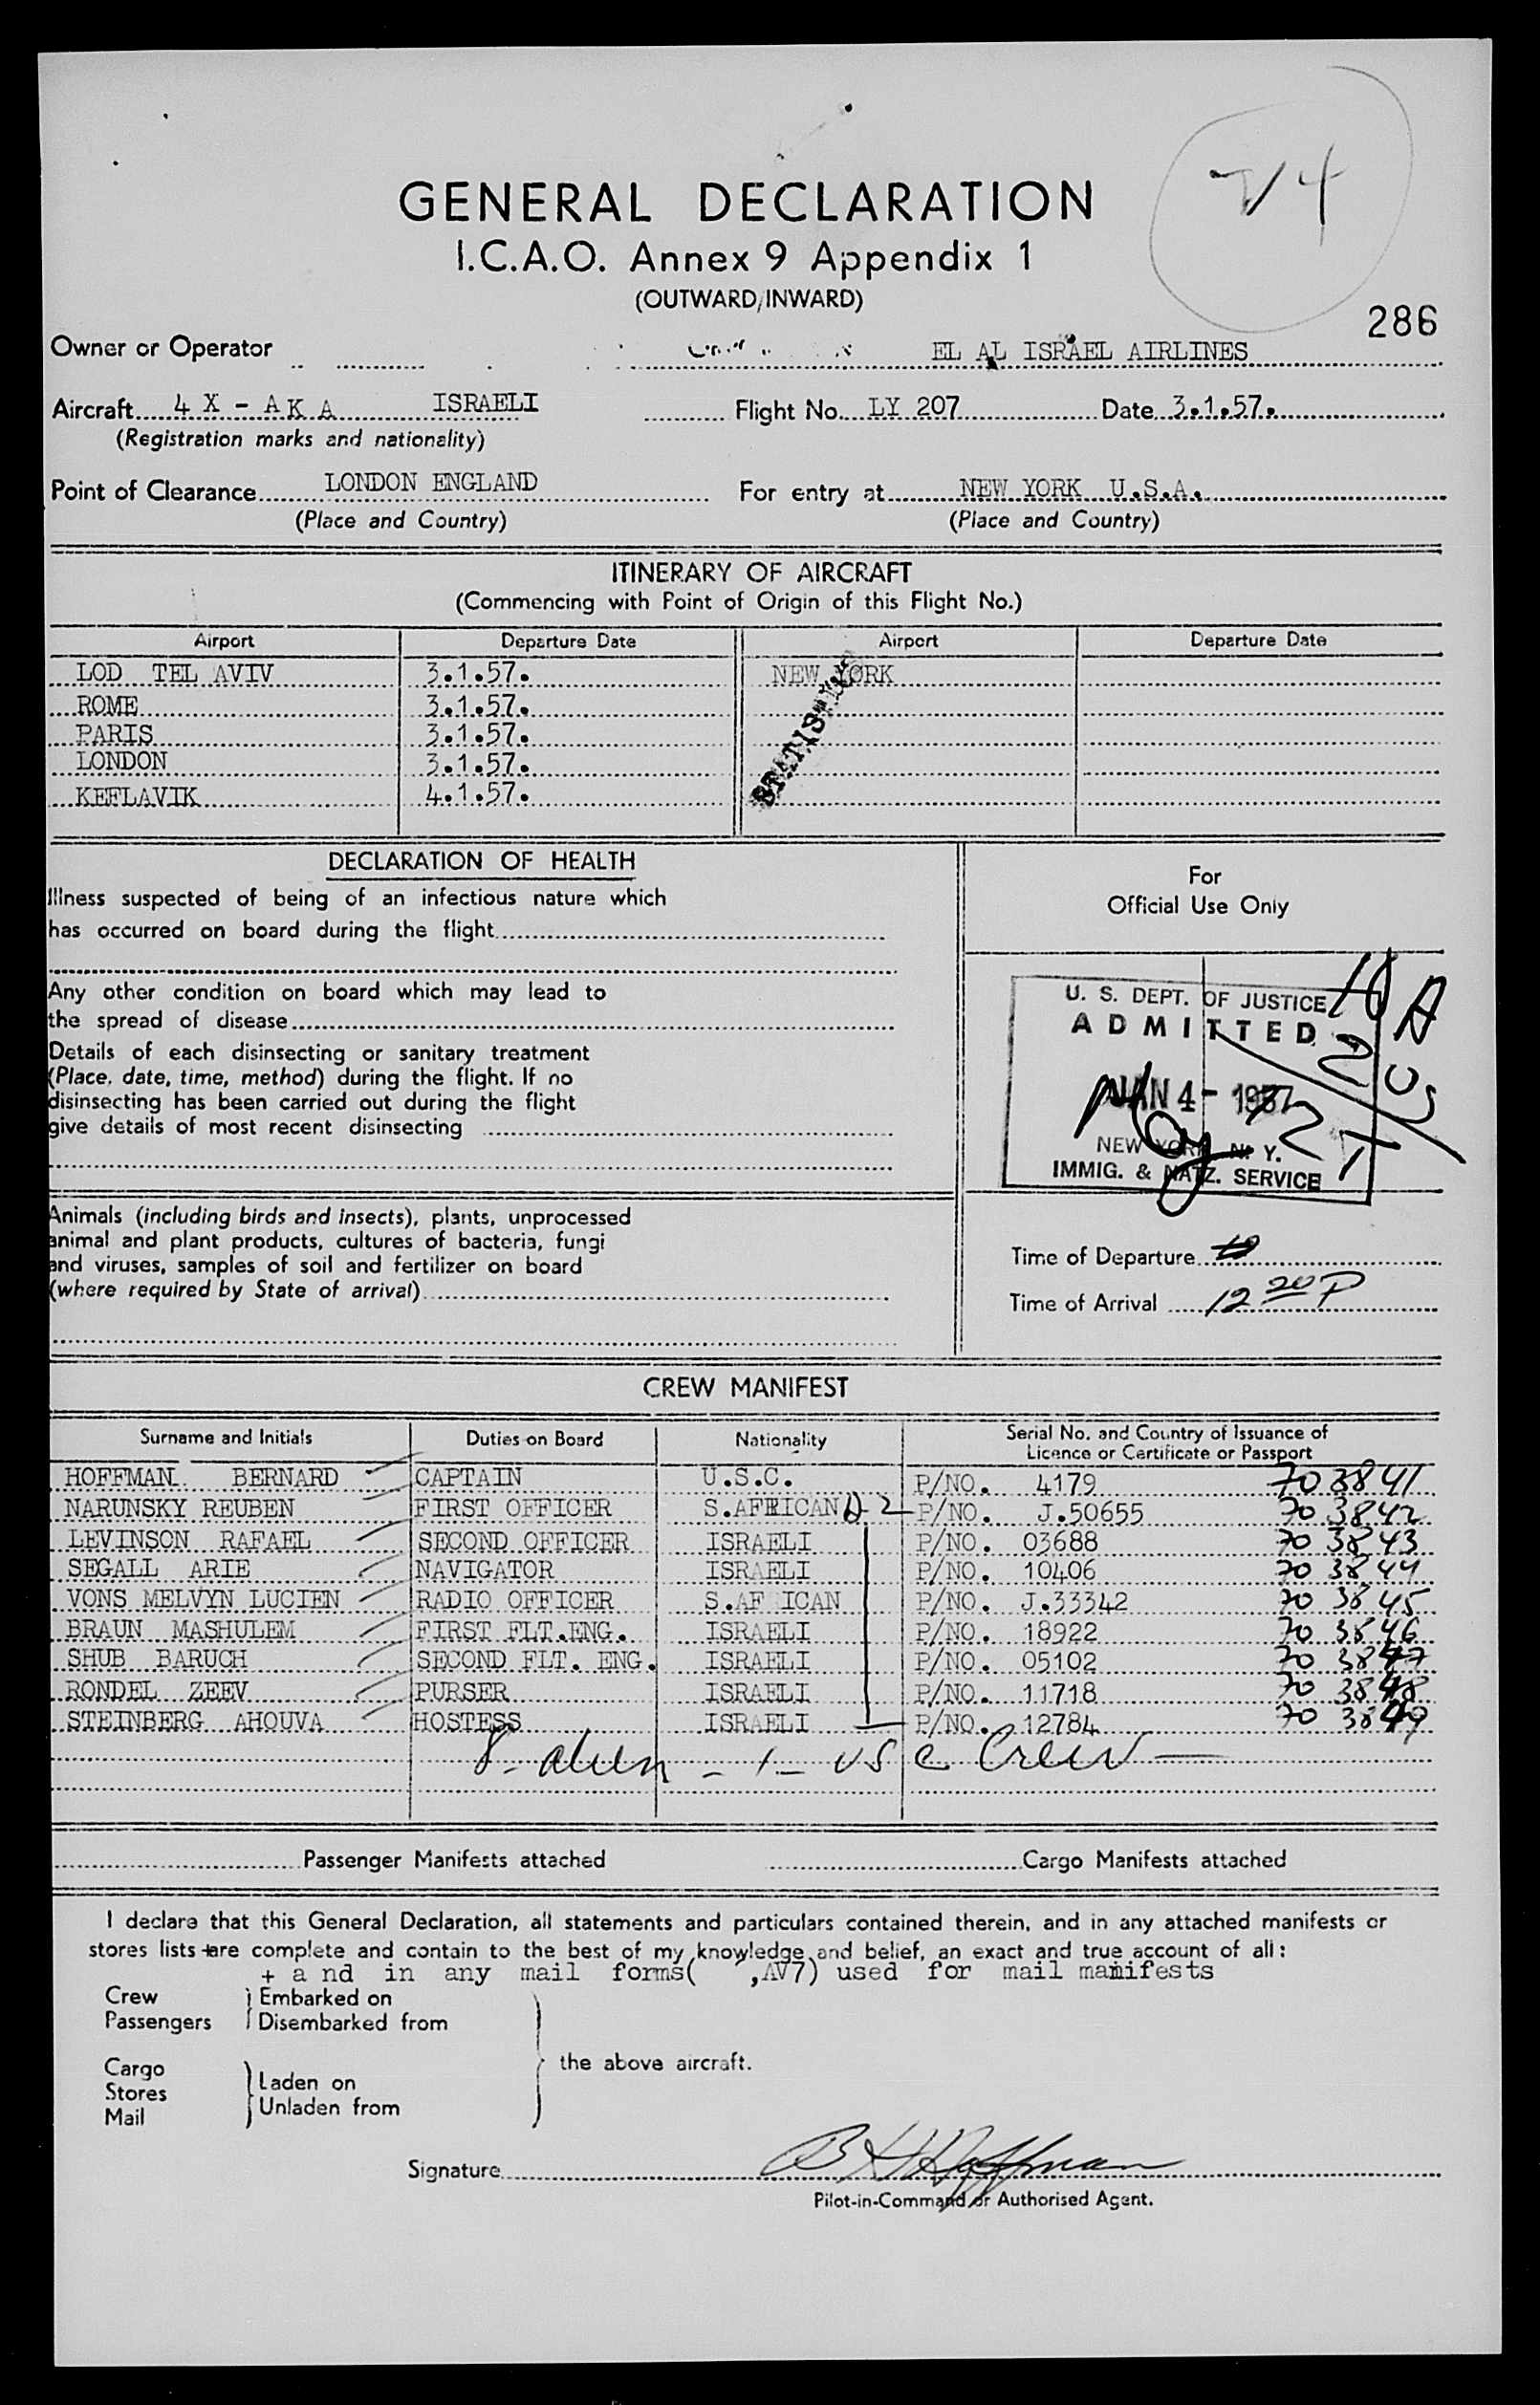 GENERAL DECLARATION
I.C.A.O. Annex 9 Appendix 1
(OUTWARD/INWARD)
286
Owner or Operator EL AL ISRAEL AIRLINES
Aircraft 4 X - A K A ISRAELI Flight No. LY 207 Date 3.1.57.
(Registration marks and nationality)
Point of Clearance LONDON ENGLAND For entry at NEW YORK U.S.A.
(Place and Country) (Place and Country)
ITINERARY OF AIRCRAFT
(Commencing with Point of Origin of this Flight No.)
Airport Departure Date Airport Departure Date
LOD TEL AVIV 3.1.57. NEW YORK
ROME 3.1.57.
PARIS 3.1.57.
LONDON 3.1.57.
KEFLAVIK 4.1.57.
DECLARATION OF HEALTH
Illness suspected of being of an infectious nature which
has occurred on board during the flight
Any other condition on board which may lead to
the spread of disease
Details of each disinsecting or sanitary treatment
(Place, date, time, method) during the flight. If no
disinsecting has been carried out during the flight
give details of most recent disinsecting
Animals (including birds and insects), plants, unprocessed
animal and plant products, cultures of bacteria, fungi
and viruses, samples of soil and fertilizer on board
(where required by State of arrival)
For
Official Use Only
U. S. DEPT. OF JUSTICE
ADMITTED
JAN 4 - 1957
NEW YORK N. Y.
IMMIG. & NATZ. SERVICE
Time of Departure
Time of Arrival 12 20 P
CREW MANIFEST
Surname and Initials Duties on Board Nationality Serial No. and Country of Issuance of
Licence or Certificate or Passport
HOFFMAN BERNARD CAPTAIN U.S.C. P/NO. 4179 703841
NARUNSKY REUBEN FIRST OFFICER S.AFRICAN D-2 P/NO. J.50655 70 3842
LEVINSON RAFAEL SECOND OFFICER ISRAELI P/NO. 03688 70 3843
SEGALL ARIE NAVIGATOR ISRAELI P/NO. 10406 70 3844
VONS MELVYN LUCIEN RADIO OFFICER S.AF ICAN P/NO. J.33342 70 3845
BRAUN MASHULEM FIRST FLT.ENG. ISRAELI P/NO. 18922 70 3846
SHUB BARUCH SECOND FLT. ENG. ISRAELI P/NO. 05102 70 3847
RONDEL ZEEV PURSER ISRAELI P/NO. 11718 70 3848
STEINBERG AHOUVA HOSTESS ISRAELI P/NO. 12784 70 3849
8 - alien - 1 - USC Crew -
Passenger Manifests attached Cargo Manifests attached
I declare that this General Declaration, all statements and particulars contained therein, and in any attached manifests or
stores lists + are complete and contain to the best of my knowledge and belief, an exact and true account of all:
+ a nd in any mail forms( ,AV7) used for mail manifests
Crew Embarked on
Passengers Disembarked from
the above aircraft.
Cargo
Stores Laden on
Mail Unladen from
Signature B H Hoffman
Pilot-in-Command or Authorised Agent.